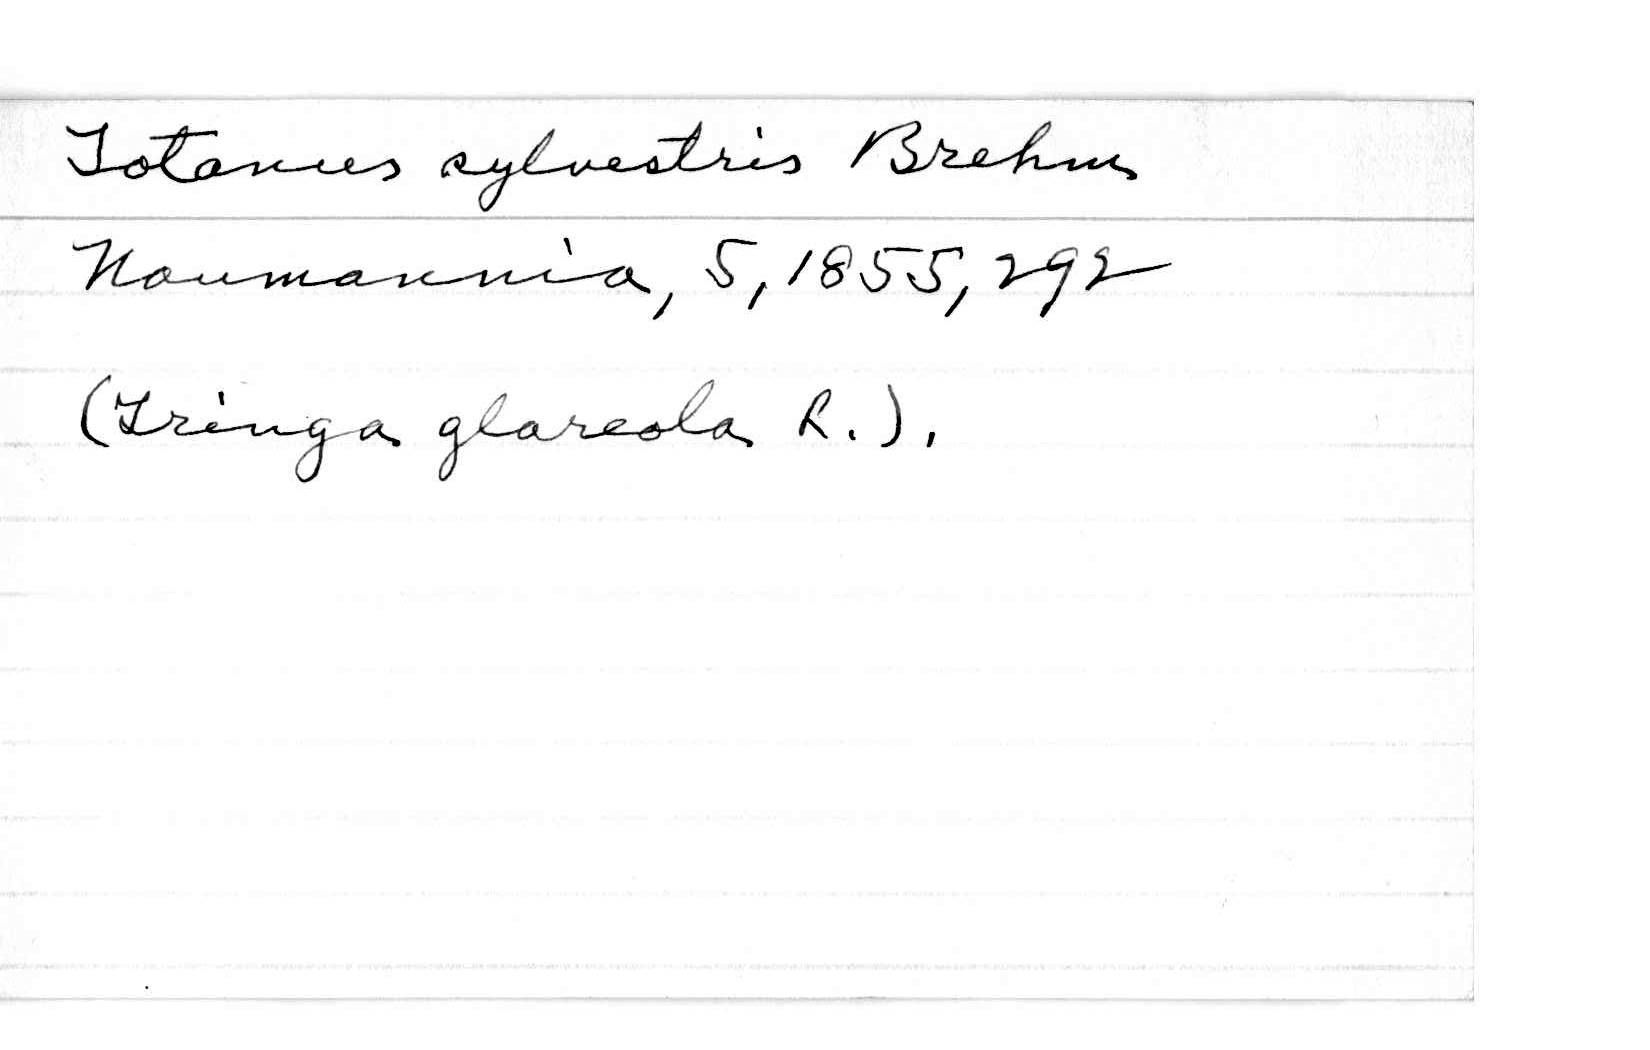 Totanus sylvestris Brehm
Naumannia, 5, 1855, 292
(Tringa glareola L.).